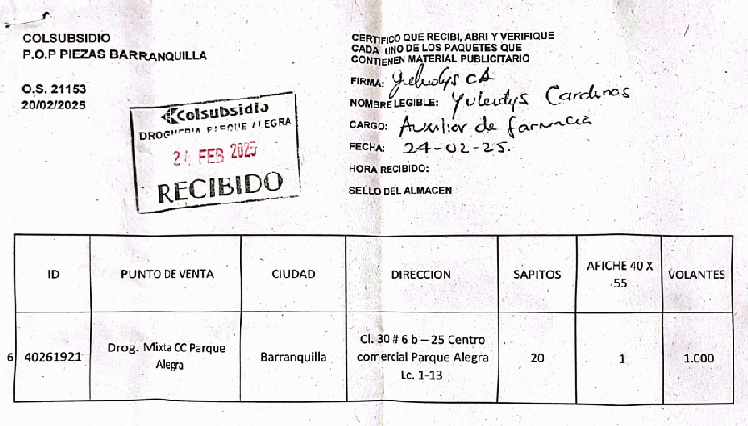 COLSUBSIDIO
P.O.P PIEZAS BARRANQUILLA
O.S. 21153
20/02/2025
Colsubsidio
DROGUERIA PARQUE ALEGRA
24 FEB 2025
RECIBIDO
CERTIFICO QUE RECIBI, ABRI Y VERIFIQUE
CADA UNO DE LOS PAQUETES QUE
CONTIENEN MATERIAL PUBLICITARIO
FIRMA: Yuleidys CA
NOMBRE LEGIBLE: Yuleidys Cardenas
CARGO: Auxiliar de farmacia
FECHA: 24-02-25.
HORA RECIBIDO:
SELLO DEL ALMACEN
ID PUNTO DE VENTA CIUDAD DIRECCION SAPITOS AFICHE 40 X 55 VOLANTES
6 40261921 Drog. Mixta CC Parque Alegra Barranquilla Cl. 30 # 6 b – 25 Centro comercial Parque Alegra Lc. 1-13 20 1 1.000